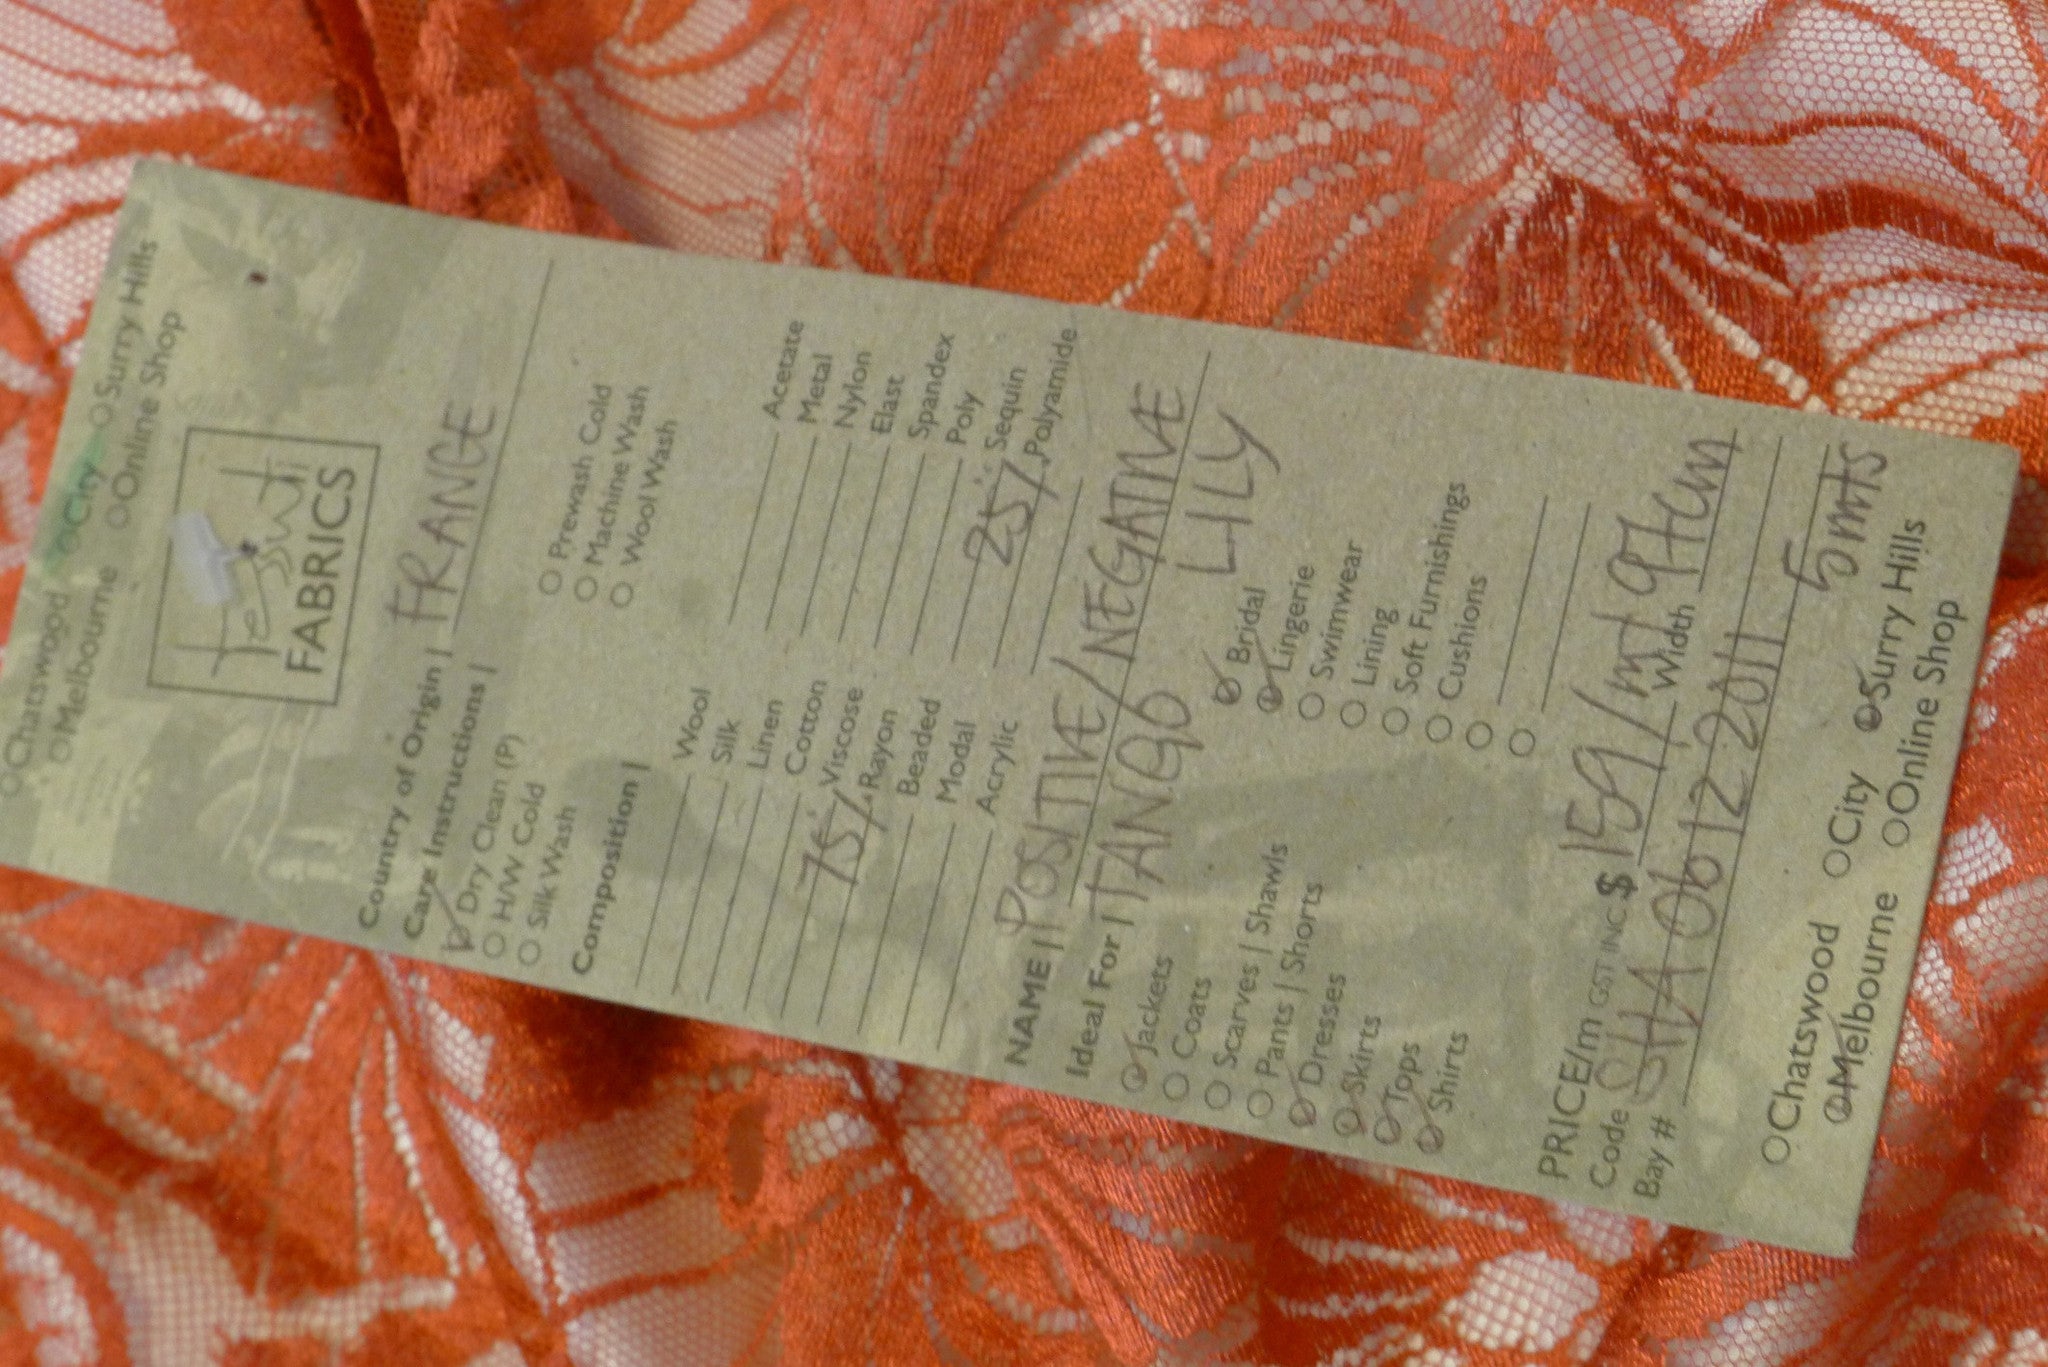 Chatswood City Surry Hills
Melbourne Online Shop
Tessuti
FABRICS
Country of Origin | FRANCE
Care Instructions |
Dry Clean (P) Prewash Cold
H/W Cold Machine Wash
Silk Wash Wool Wash
Composition |
Wool Acetate
Silk Metal
Linen Nylon
Cotton Elast
75% Viscose Spandex
Rayon Poly
Beaded Sequin
Modal 25% Polyamide
Acrylic
NAME | POSITIVE/NEGATIVE
Ideal For | TANGO LILY
Jackets Bridal
Coats Lingerie
Scarves | Shawls Swimwear
Pants | Shorts Lining
Dresses Soft Furnishings
Skirts Cushions
Tops
Shirts
PRICE/m GST INC $ 159/mt
Code Width 97cm
Bay # 06 12 2011 5mts
Chatswood City Surry Hills
Melbourne Online Shop